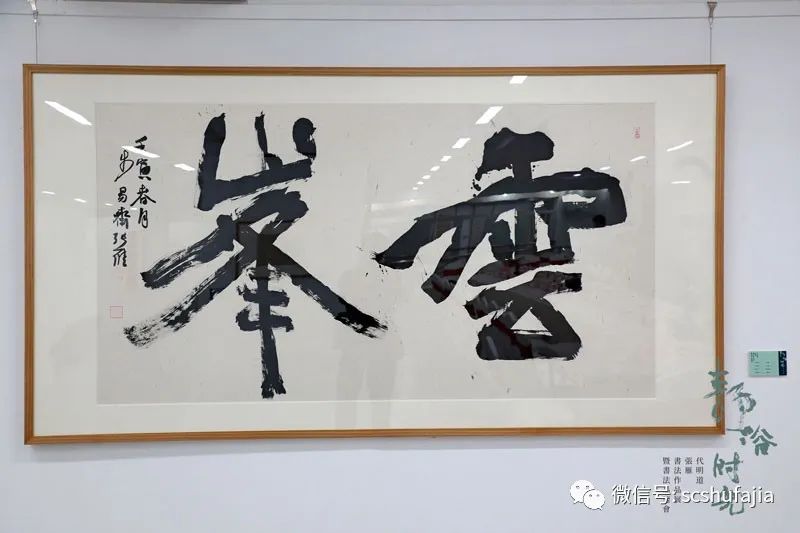 雲峯
壬寅春月
步易齋張雁
代明道
張雁
書法作品
暨書法會
微信号: scshufajia